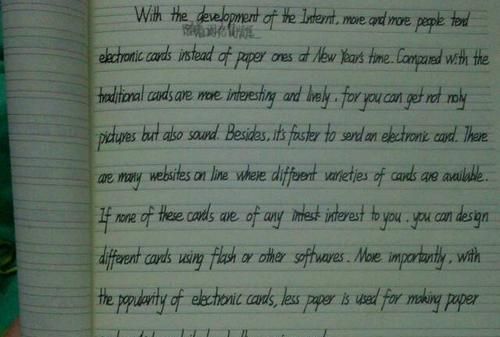 With the development of the Internt, more and more people tend
electronic cards instead of paper ones at New Year's time. Compared with the
traditional cards are more interesting and lively, for you can get not noly
pictures but also sound. Besides, it's faster to send an electronic card. There
are many websites on line where different varieties of cards are available.
If none of these cards are of any interest to you, you can design
different cards using flash or other softwares. More importantly, with
the popularity of electronic cards, less paper is used for making paper